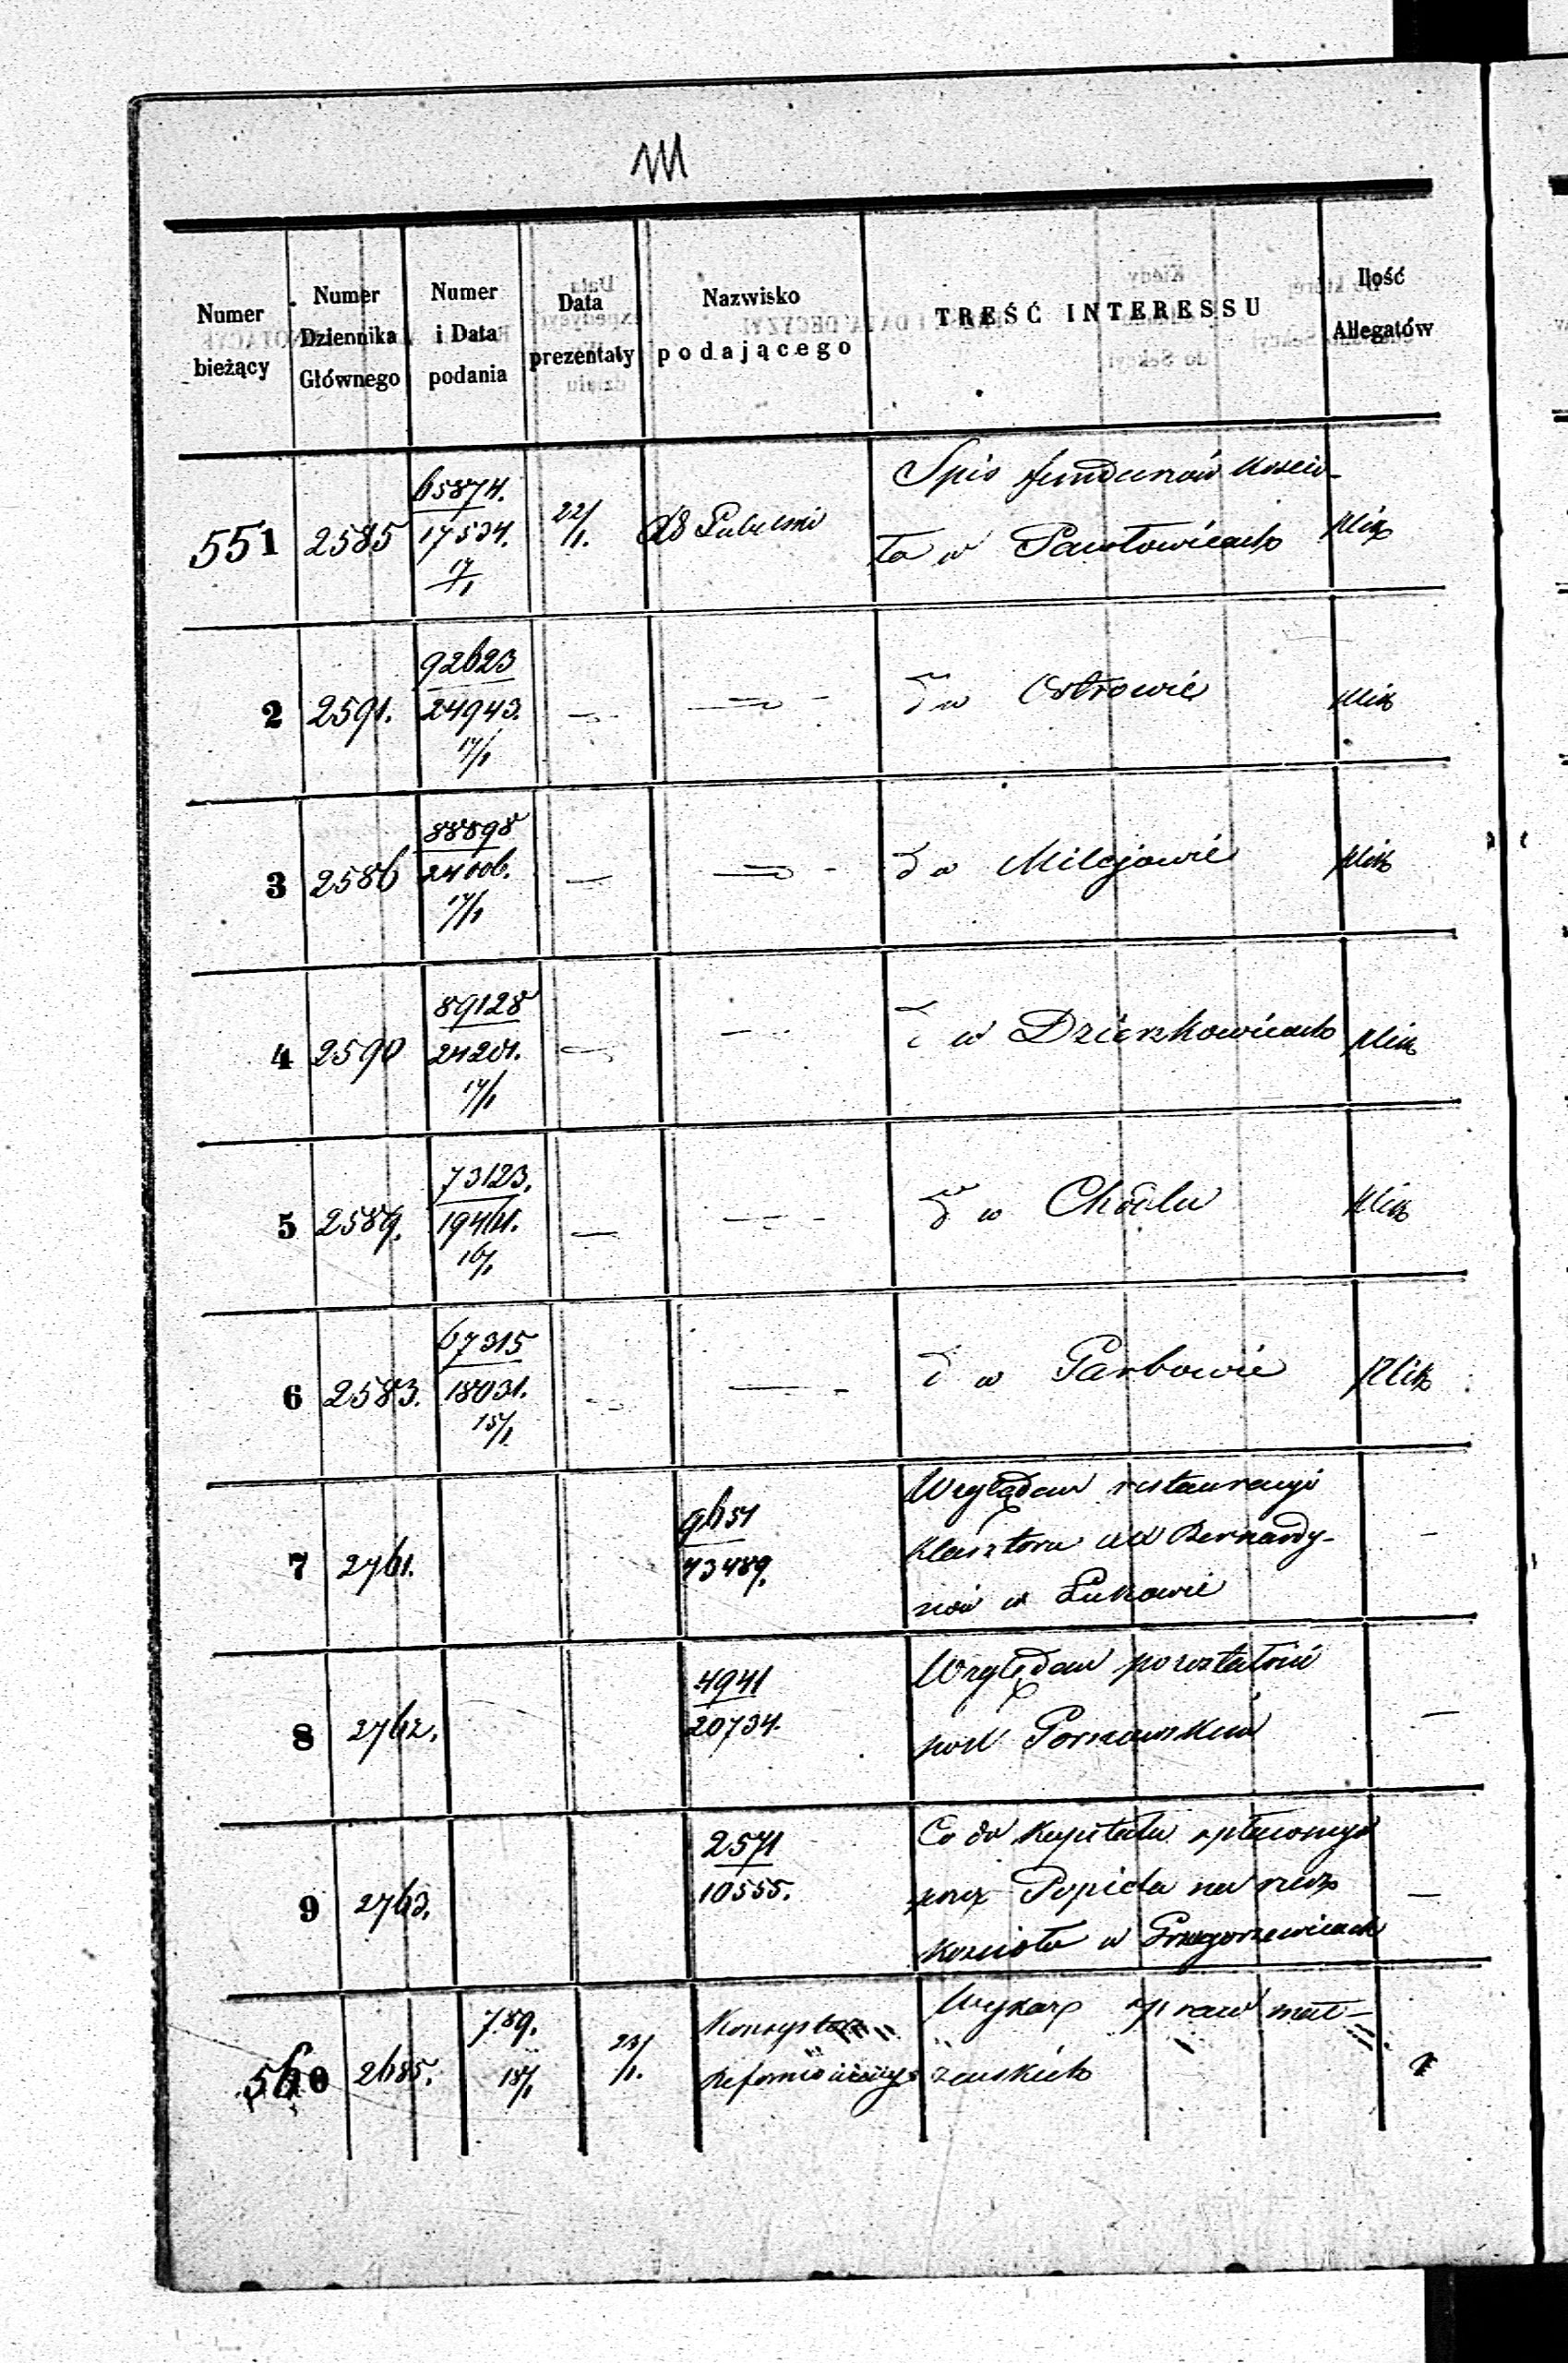 Numer bieżący
Numer Dziennika Głównego
Numer i Data podania
Data prezentaty
Nazwisko podającego
TREŚĆ INTERESSU
Ilość Allegatów
551 2585 65874. 22/1. Spis funduszów Kościo-
17534. ła w Pawłowicach plik
17/1
2 2591. 92623 — — w Ostrowie plik
24943.
17/1
3 2586 88898 — — w Milejowie plik
24006.
17/1
4 2590 89128 — — w Dzierzkowicach plik
24201.
17/1
5 2589. 73123. — — w Chodlu plik
19461.
16/1
6 2583. 67315 — — w Garbowie plik
18031.
15/1
7 2761. 9651 Względem restauracyi —
43489. Klasztoru XX Bernardy-
nów w Łukowie
8 2762. 4941 Względem pozostałości —
20734.
9 2763. 2571 Co do Kapitału spłaconego —
10555. przez Popiela na rzecz
Kościoła w Grzegorzewicach
560 2685. 789. 23/1. Konsystorz Wykaz spraw mał-
18/1 Reformowany żeńskich 1